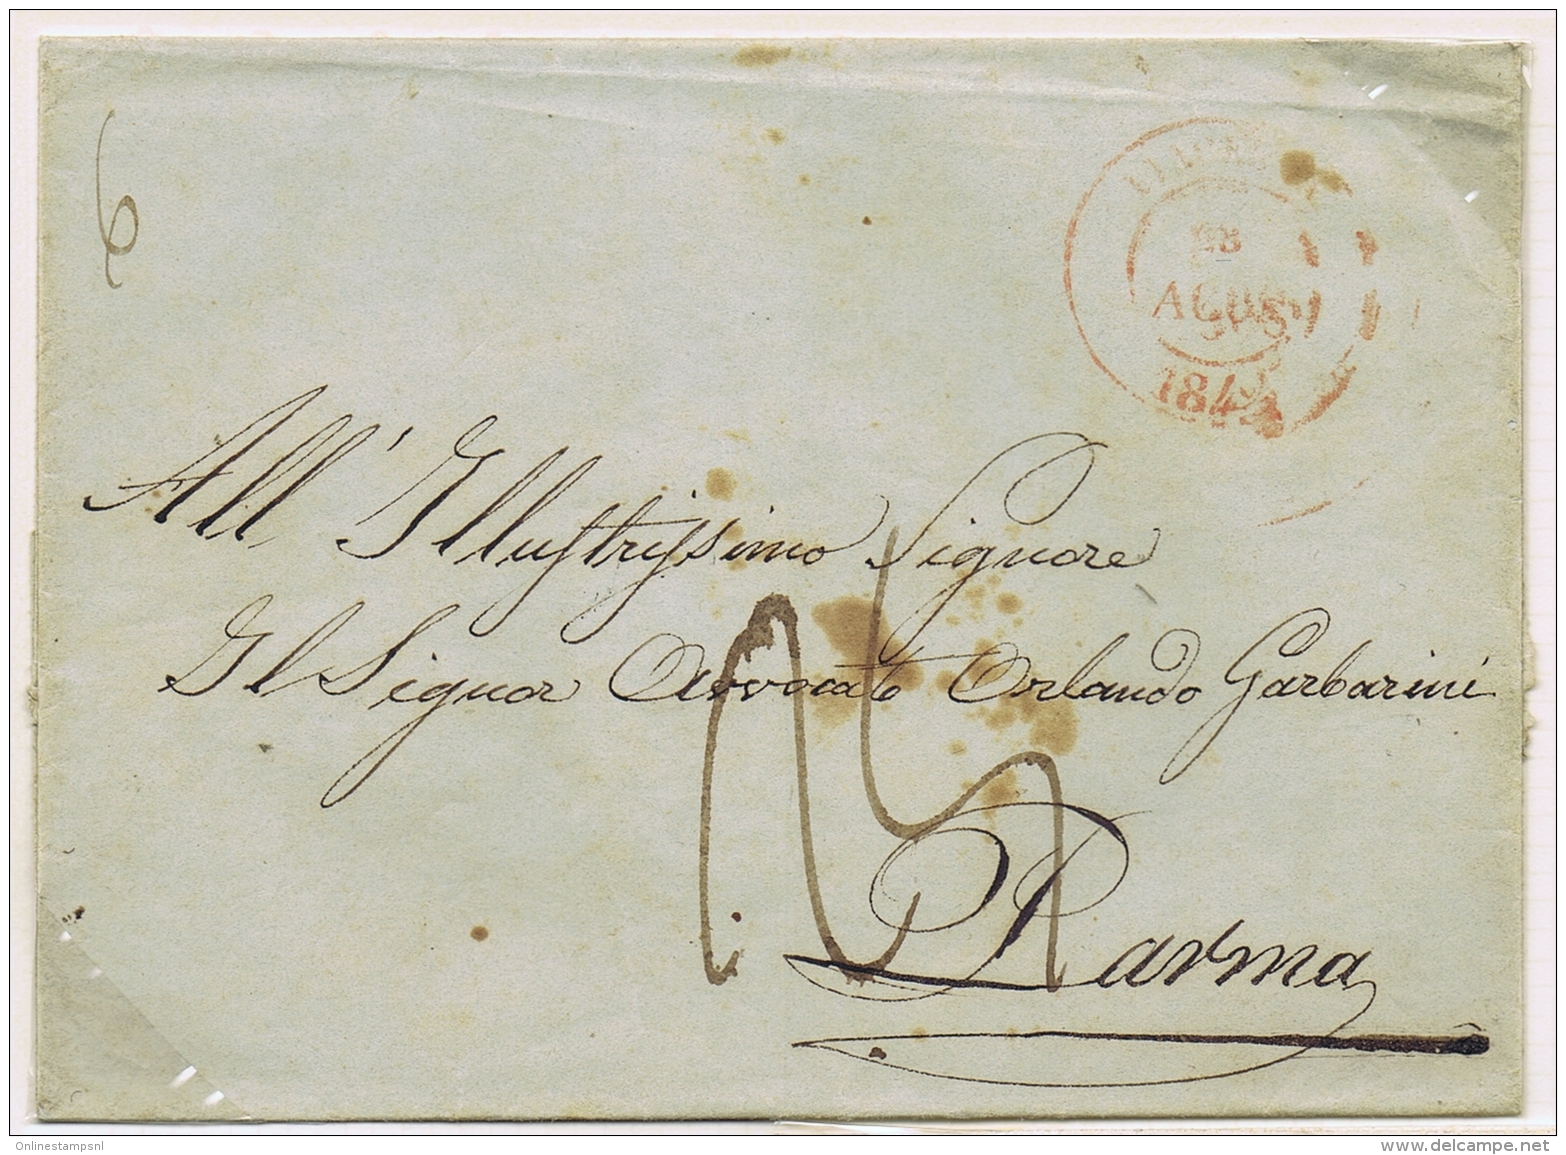 6
28
AGOSTO
184
All' Illustrissimo Signore
Il Signor Avvocato Orlando Garbarini
Parma
Onlinestampsnl
www.delcampe.net